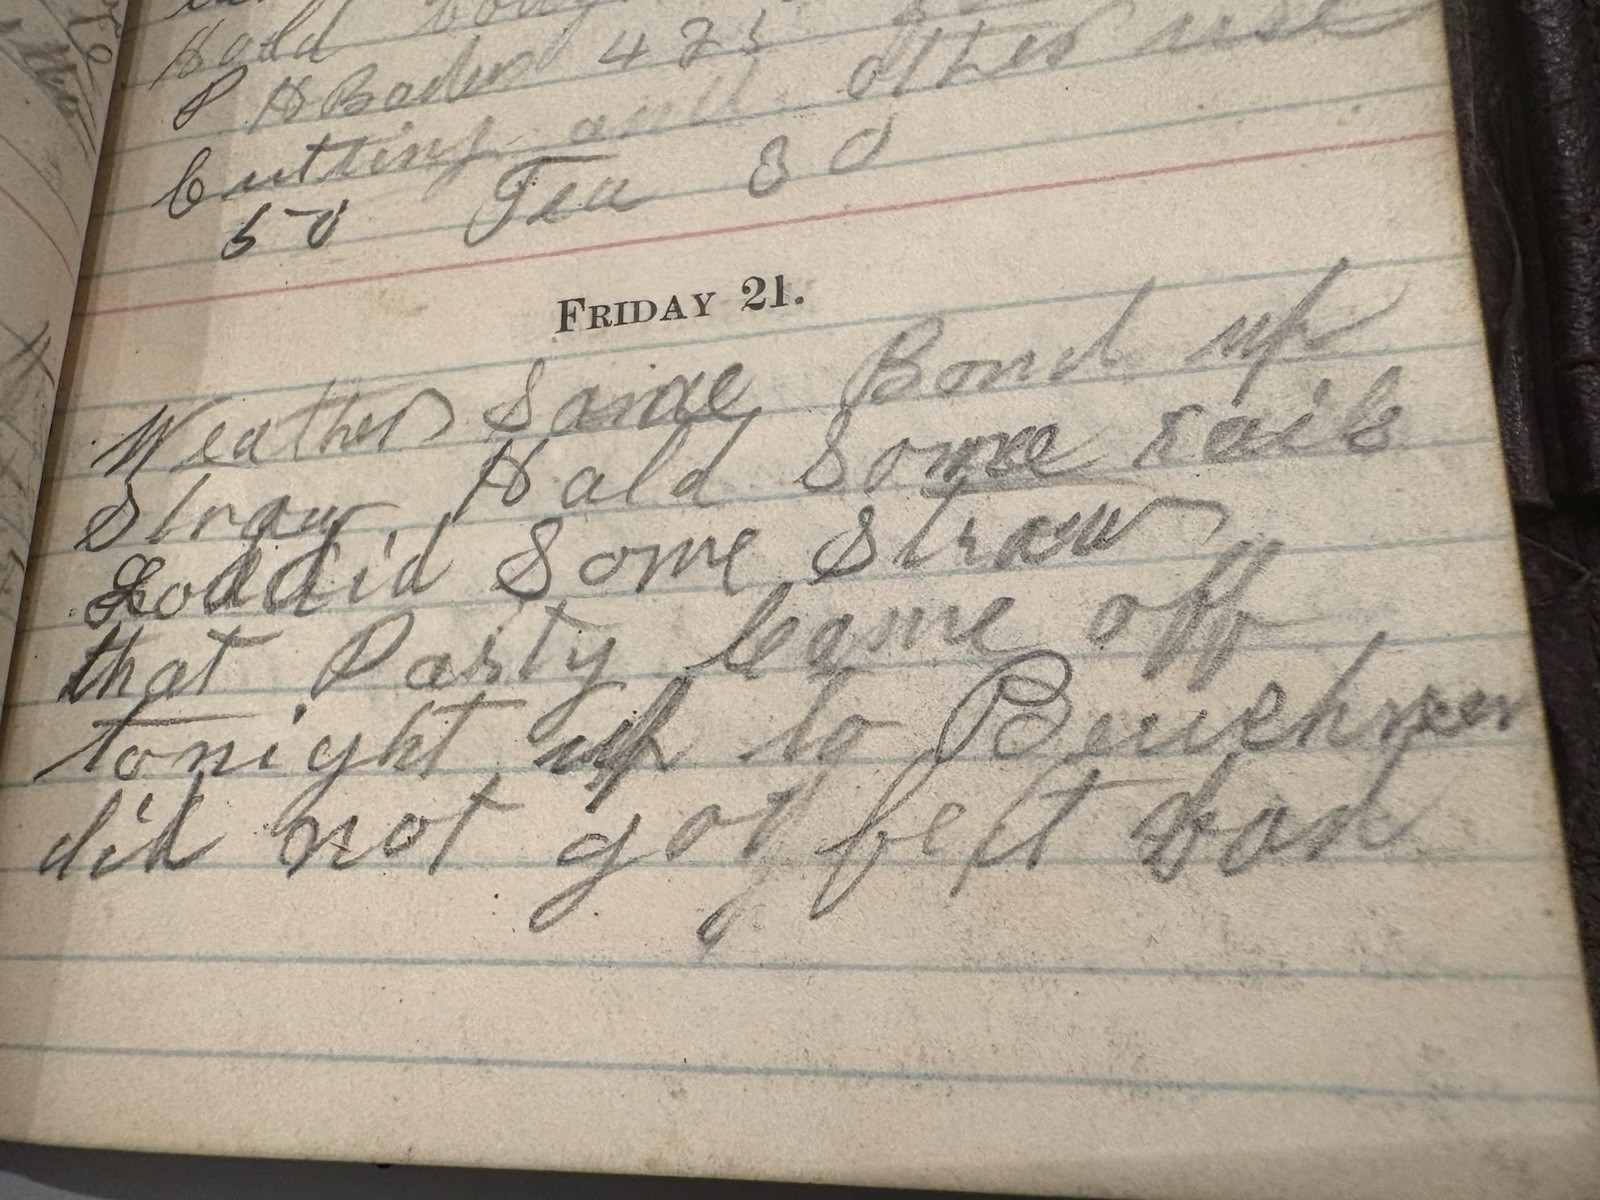 Hald
P H Bader 423
Cutting and other use
50 Tea 80
FRIDAY 21.
Weather Same Bond up
Straw Hald Some rails
Loddid Some Straw
that Party Came off
tonight up to
did not go felt bad